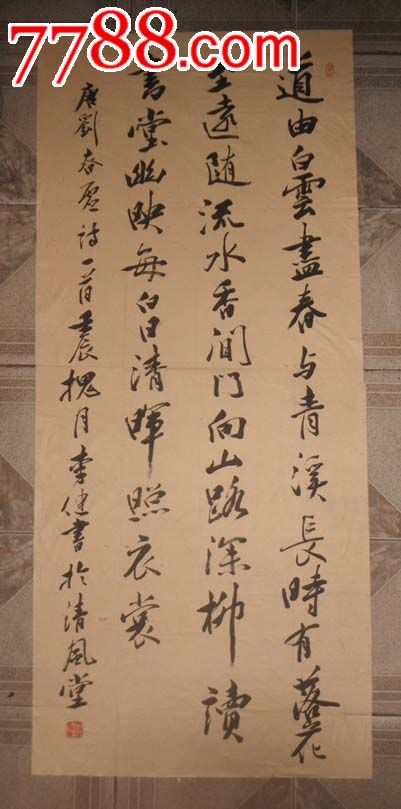 7788.com
道由白雲盡春与青溪長時有落花
至遠随流水香閒门向山路深柳讀
書堂幽映每白日清暉照衣裳
唐劉春虚诗一首壬辰槐月李健書於清風堂